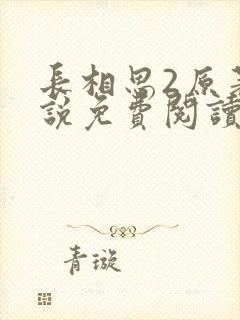 長相思2原著
說免費閱讀
青璇